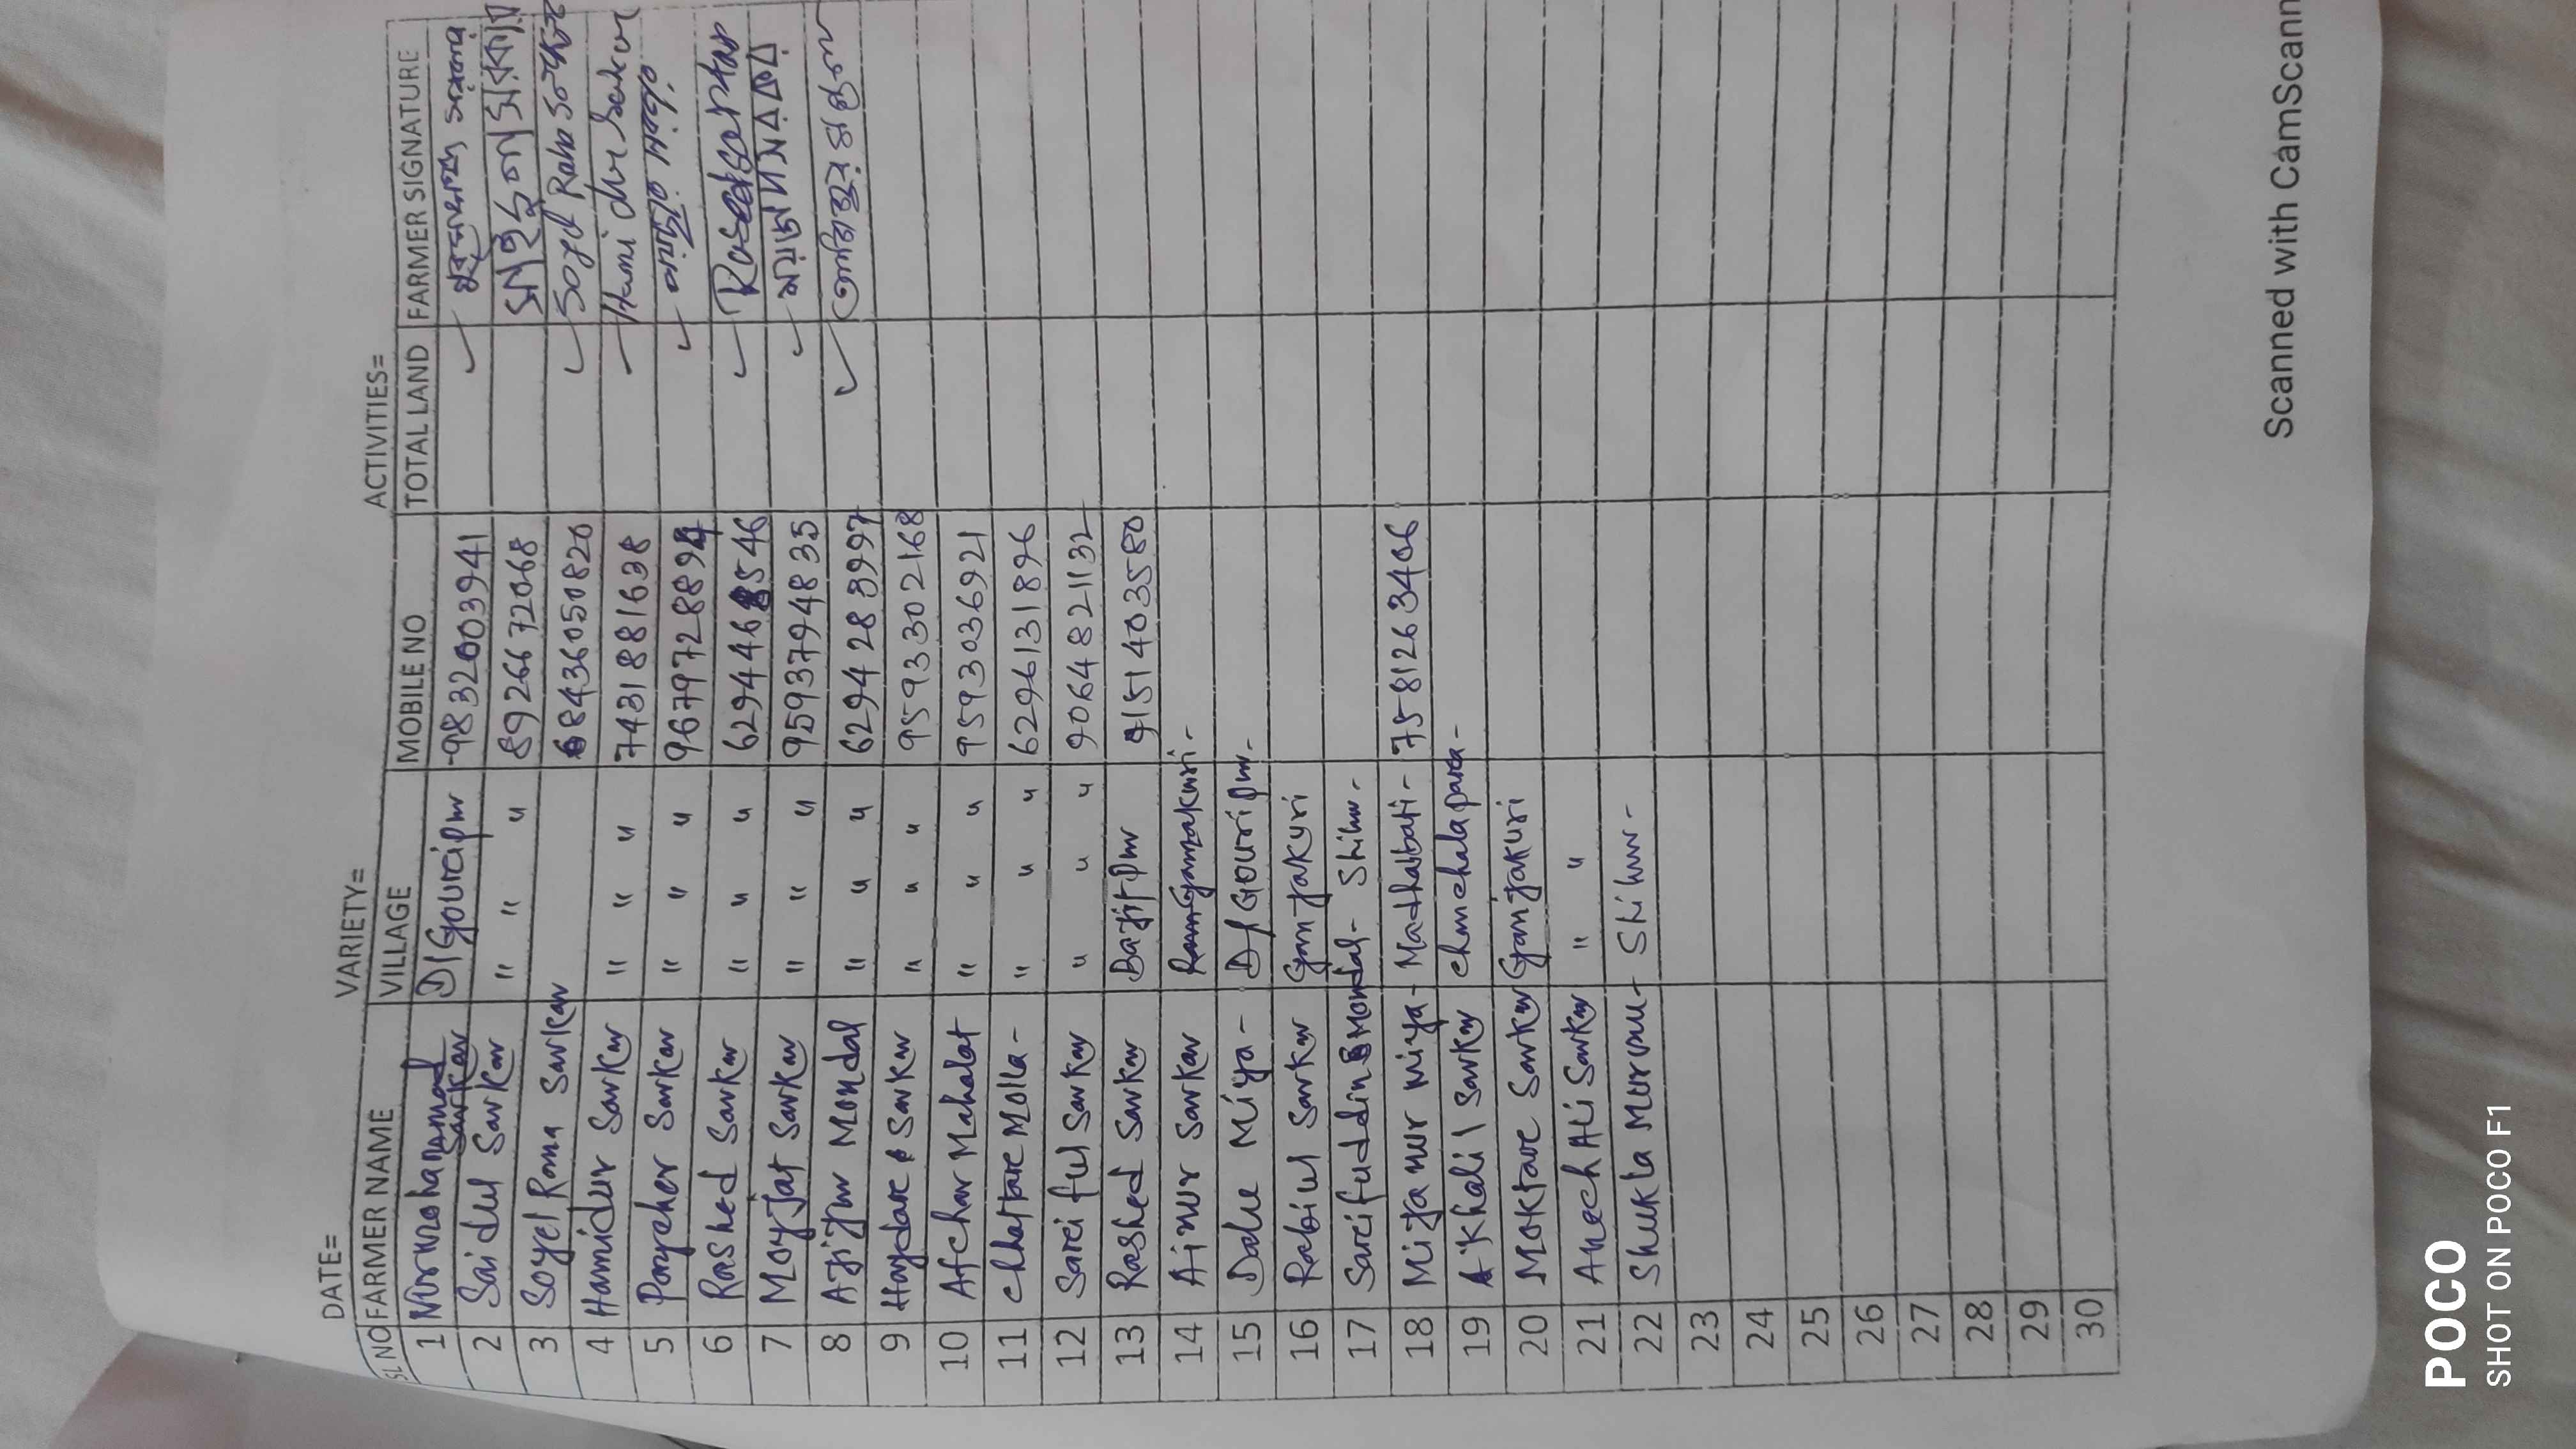 DATE= VARIETY= ACTIVITIES=
SL NO FARMER NAME VILLAGE MOBILE NO TOTAL LAND FARMER SIGNATURE
1 Sarkar D/Gouripur 9832003941
2 Saidul Sarkar " " " 8926672068 সাইদুল সরকার
3 Soyel Rana Sarkar 8436050820 Soyel Rana Sarkar
4 Hamidur Sarkar " " " 7431881638 Hamidur Sarkar
5 Sarkar " " " 967972889
6 Rashed Sarkar " " " 6294468546
7 Moyjat Sarkar " " " 9593794835
8 Ajijur Mondal " " " 6294283997
9 Haydar Sarkar " " " 9593302168
10 Afchar Mahalat " " " 9593036921
11 Chhattare Molla - " " " 6296131896
12 Sareiful Sarkar " " " 9064821132
13 Rashed Sarkar Bajitpur 9151403580
14 Ainur Sarkar
15 Dalu Miya - D/Gouripur -
16 Rabiul Sarkar Ganjakuri
17 Sareifuddin Mondal - Shihur -
18 Mijanur Miya - Madhabbati - 7581263406
19 A Khalil Sarkar
20 Moktare Sarkar Ganjakuri
21 Anech Ali Sarkar " "
22 Shukla Murmu - Shihur -
23
24
25
26
27
28
29
30
Scanned with CamScann
POCO
SHOT ON POCO F1